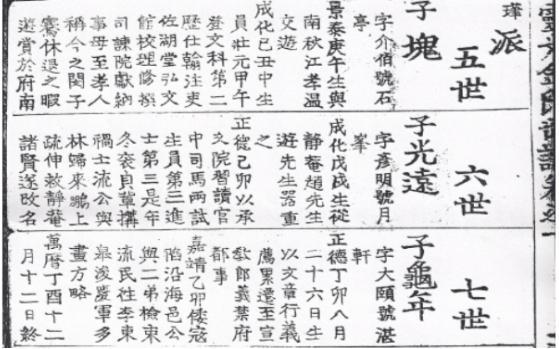 派
五世
子塊
字介伯號石
亭
景泰庚午生與
南秋江孝温
交遊
成化己丑中生
員壯元甲午
登文科第二
歷仕翰注吏
佐湖堂弘文
館校理修撰
司諫院獻納
事母至孝人
稱今之閔子
騫休退之暇
遊賞於府南
六世
子光遠
字彦明號月
峯
成化戊戌生從
静庵趙先生
遊先生器重
之
正德己卯以承
文院習讀官
中司馬兩試
生員第三進
士第三是年
冬袞貞輩搆
禍士流公與
林歸來鵬上
疏伸救靜菴
諸賢遂改名
七世
子龜年
字大頤號湛
軒
正德丁卯八月
二十六日生
以文章行義
薦累遷至宣
敎郎義禁府
都事
嘉靖乙卯倭寇
陷沿海邑公
與二弟檢束
流民徃李東
皐浚慶軍多
畫方略
萬曆丁酉十二
月十二日終